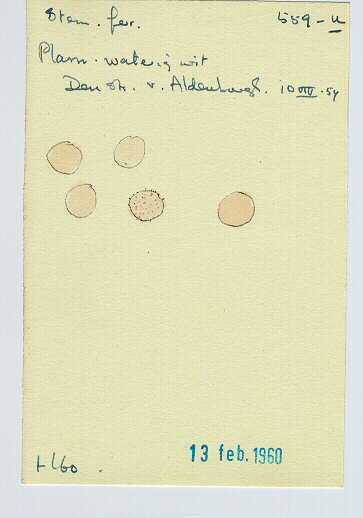 Stem. fer. 559-U
Plasm. waterig wit
Den Str. v. Aldenburgh. 10 VIII.54
13 feb. 1960